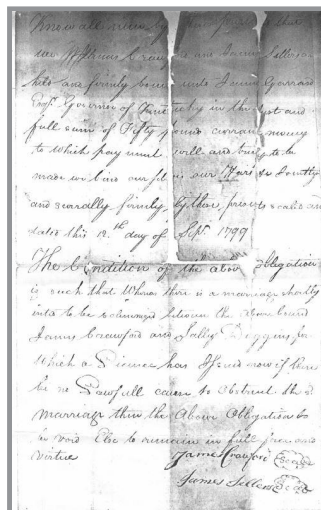 Know all men by these presents that
we William Craw and James Sellers are
held and firmly bound unto James Garrard
Esqr. Governor of Kentucky in the Just and
full sum of Fifty pounds currant money
to which payment well and truly to be
made we bind our selves our Heirs &c Jointly
and severally firmly by these presents sealed and
dated this 12th day of Sept. 1799
The Condition of the above obligation
is such that Whereas there is a marriage shortly
into be solemnized between the above bound
James Crawford and Sally Diggins for
Which a Licence has Issued now if there
be no Lawfull cause to obstruct the sd.
marriage then the Above Obligation to
be void Else to remain in full force and
Virtue James Crawford Seal
James Sellers Seal